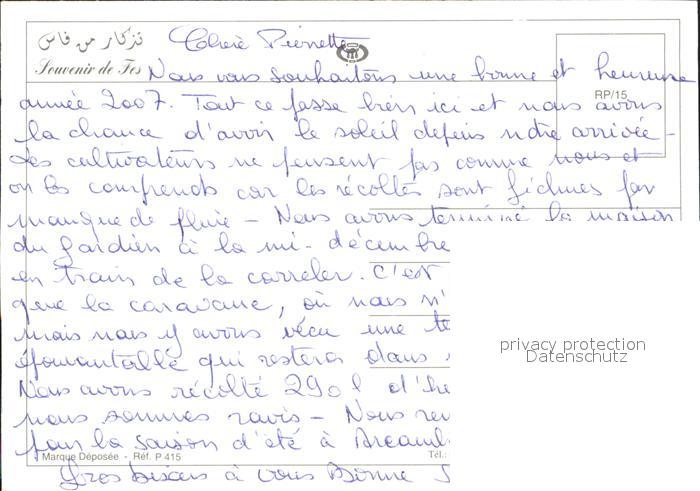 تذكار من فاس
Souvenir de Fes
Chère Pierrette
RP/15
Nous vous souhaitons une bonne et heureuse
année 2007. Tout ce passe bien ici et nous avons
la chance d'avoir le soleil depuis notre arrivée -
Les cultivateurs ne pensent pas comme nous et
on les comprends car les récoltes sont fichues par
manque de pluie - Nous avons terminé la maison
du gardien à la mi-décembre
en train de la carreler. C'est
que la caravane, où nous n'
mais nous y avons vécu une te
époumantable qui restera dans
Nous avons récolté 290 l d'hu
nous sommes ravis - Nous rev
pour la saison d'été à
Marque Déposée - Réf. P 415
Tél.:
Gros bisous à vous Bonne S
privacy protection
Datenschutz